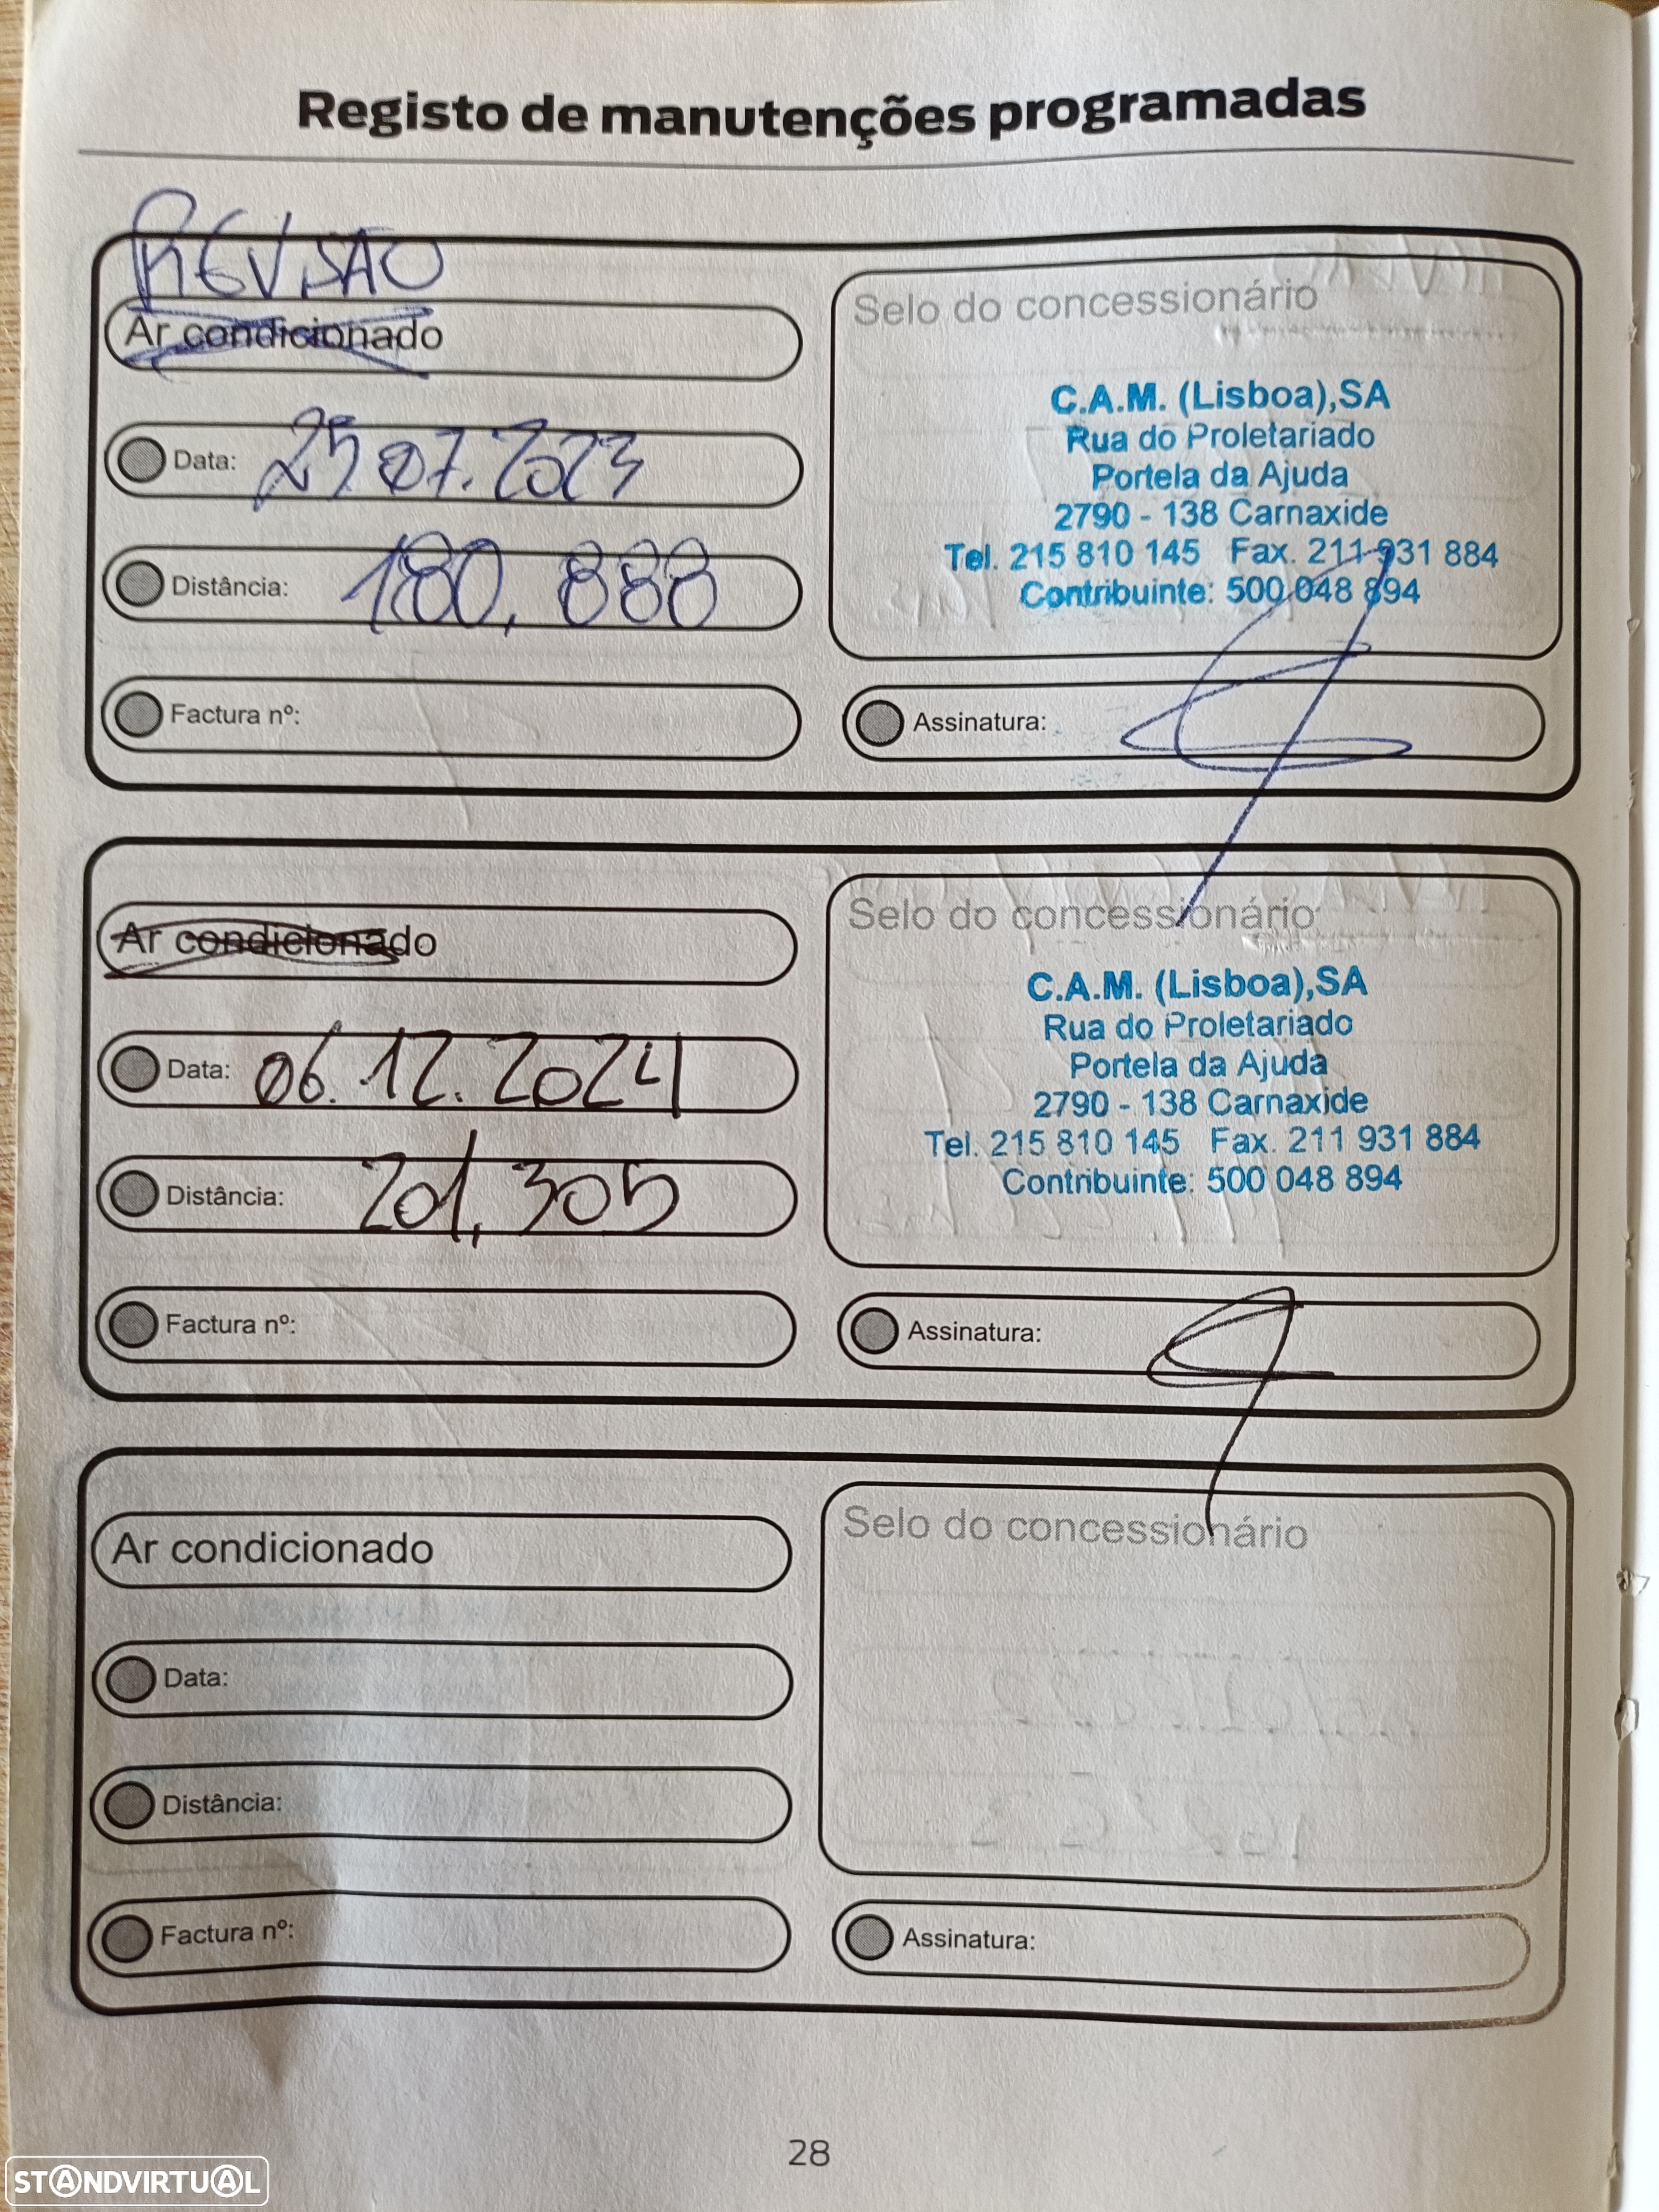 Registo de manutenções programadas
REVISÃO
Ar condicionado
Data: 25.07.2023
Distância: 180,888
Factura nº:
Selo do concessionário
C.A.M. (Lisboa),SA
Rua do Proletariado
Portela da Ajuda
2790 - 138 Carnaxide
Tel. 215 810 145 Fax. 211 931 884
Contribuinte: 500 048 894
Assinatura:
Ar condicionado
Data: 06.12.2024
Distância: 201,305
Factura nº:
Selo do concessionário
C.A.M. (Lisboa),SA
Rua do Proletariado
Portela da Ajuda
2790 - 138 Carnaxide
Tel. 215 810 145 Fax. 211 931 884
Contribuinte: 500 048 894
Assinatura:
Ar condicionado
Data:
Distância:
Factura nº:
Selo do concessionário
Assinatura:
28
STANDVIRTUAL